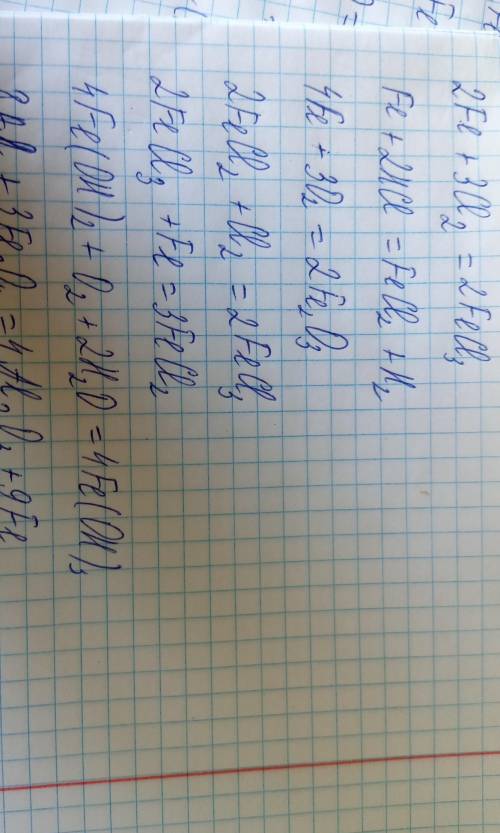 2Fe + 3Cl₂ = 2FeCl₃
Fe + 2HCl = FeCl₂ + H₂
4Fe + 3O₂ = 2Fe₂O₃
2FeCl₂ + Cl₂ = 2FeCl₃
2FeCl₃ + Fe = 3FeCl₂
4Fe(OH)₂ + O₂ + 2H₂O = 4Fe(OH)₃
8Al + 3Fe₃O₄ = 4Al₂O₃ + 9Fe